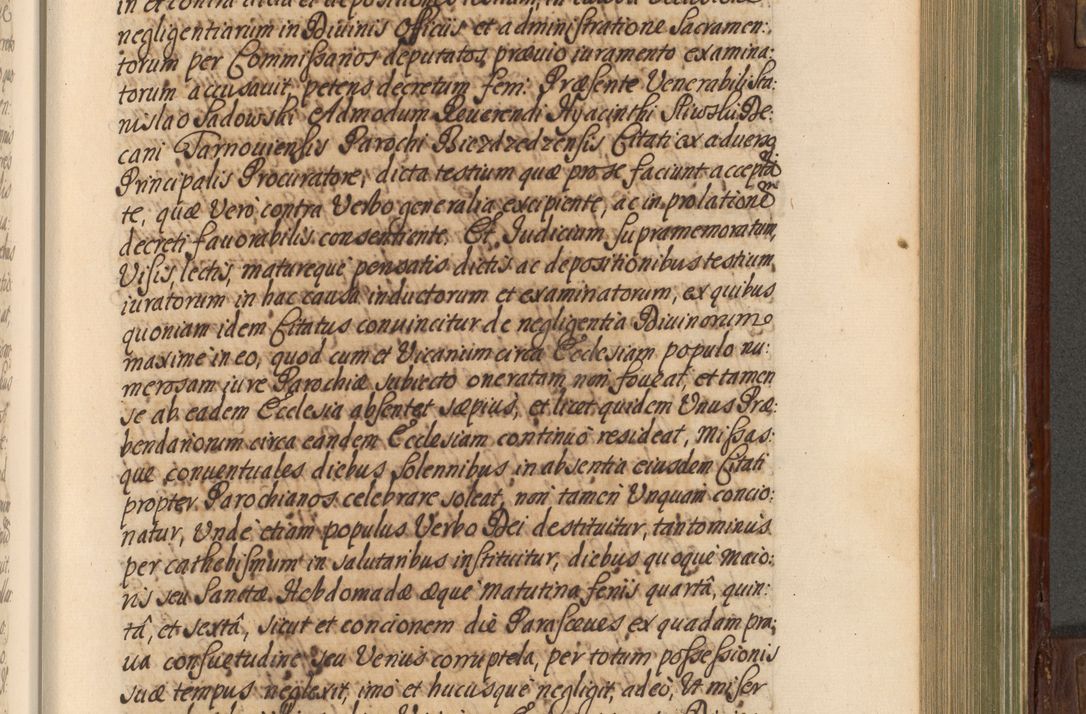 in et contra dicta et depositiones testium, in causa
negligentiarum in Divinis Officiis et administratione Sacramen:
torum per Commissarios deputatos, prævio iuramento examina:
torum accusavit, petens decretum feri: Præsente Venerabili Sta:
nislao Sadowski Admodum Reverendi Hyacinthi Sliwski De:
cani Tarnoviensis Parochi Biezdzedzensis Citati ex adverso
Principalis Procuratore, dicta testium quæ pro se faciunt accepta
te, quæ Vero contra Verbo generalia excipiente, ac in prolatione
decreti favorabilis consentiente. Et Iudicium supramemoratum,
Visis, lectis, matureque pensatis dictis ac depositionibus testium
iuratorum in hac causa inductorum et examinatorum, ex quibus
quoniam idem Citatus convincitur de negligentia Divinorum
maxime in eo, quod cum et Vicarium circa Ecclesiam populo nu:
merosam iure Parochiæ subiecto oneratam non foveat, et tamen
se ab eadem Ecclesia absentet sæpius, et licet quidem Unus Præ:
bendariorum circa eandem Ecclesiam continuo resideat, Missas:
que conventuales diebus Solennibus in absentia eiusdem Citati
propter Parochianos celebrare soleat, non tamen Unquam concio:
natur, Unde etiam populus Verbo Dei destituitur, tantominus
per cathebismum in salutaribus instituitur, diebus quoque Maio:
ris seu Sanctæ Hebdomadæ æque matutina feriis quartâ, quin:
tâ, et sextâ, sicut et concionem die Parasceves ex quadam pra:
va consuetudine seu Verius corruptela, per totum possessionis
suæ tempus neglexit, imo et hucusque negligit, adeo, Ut miser